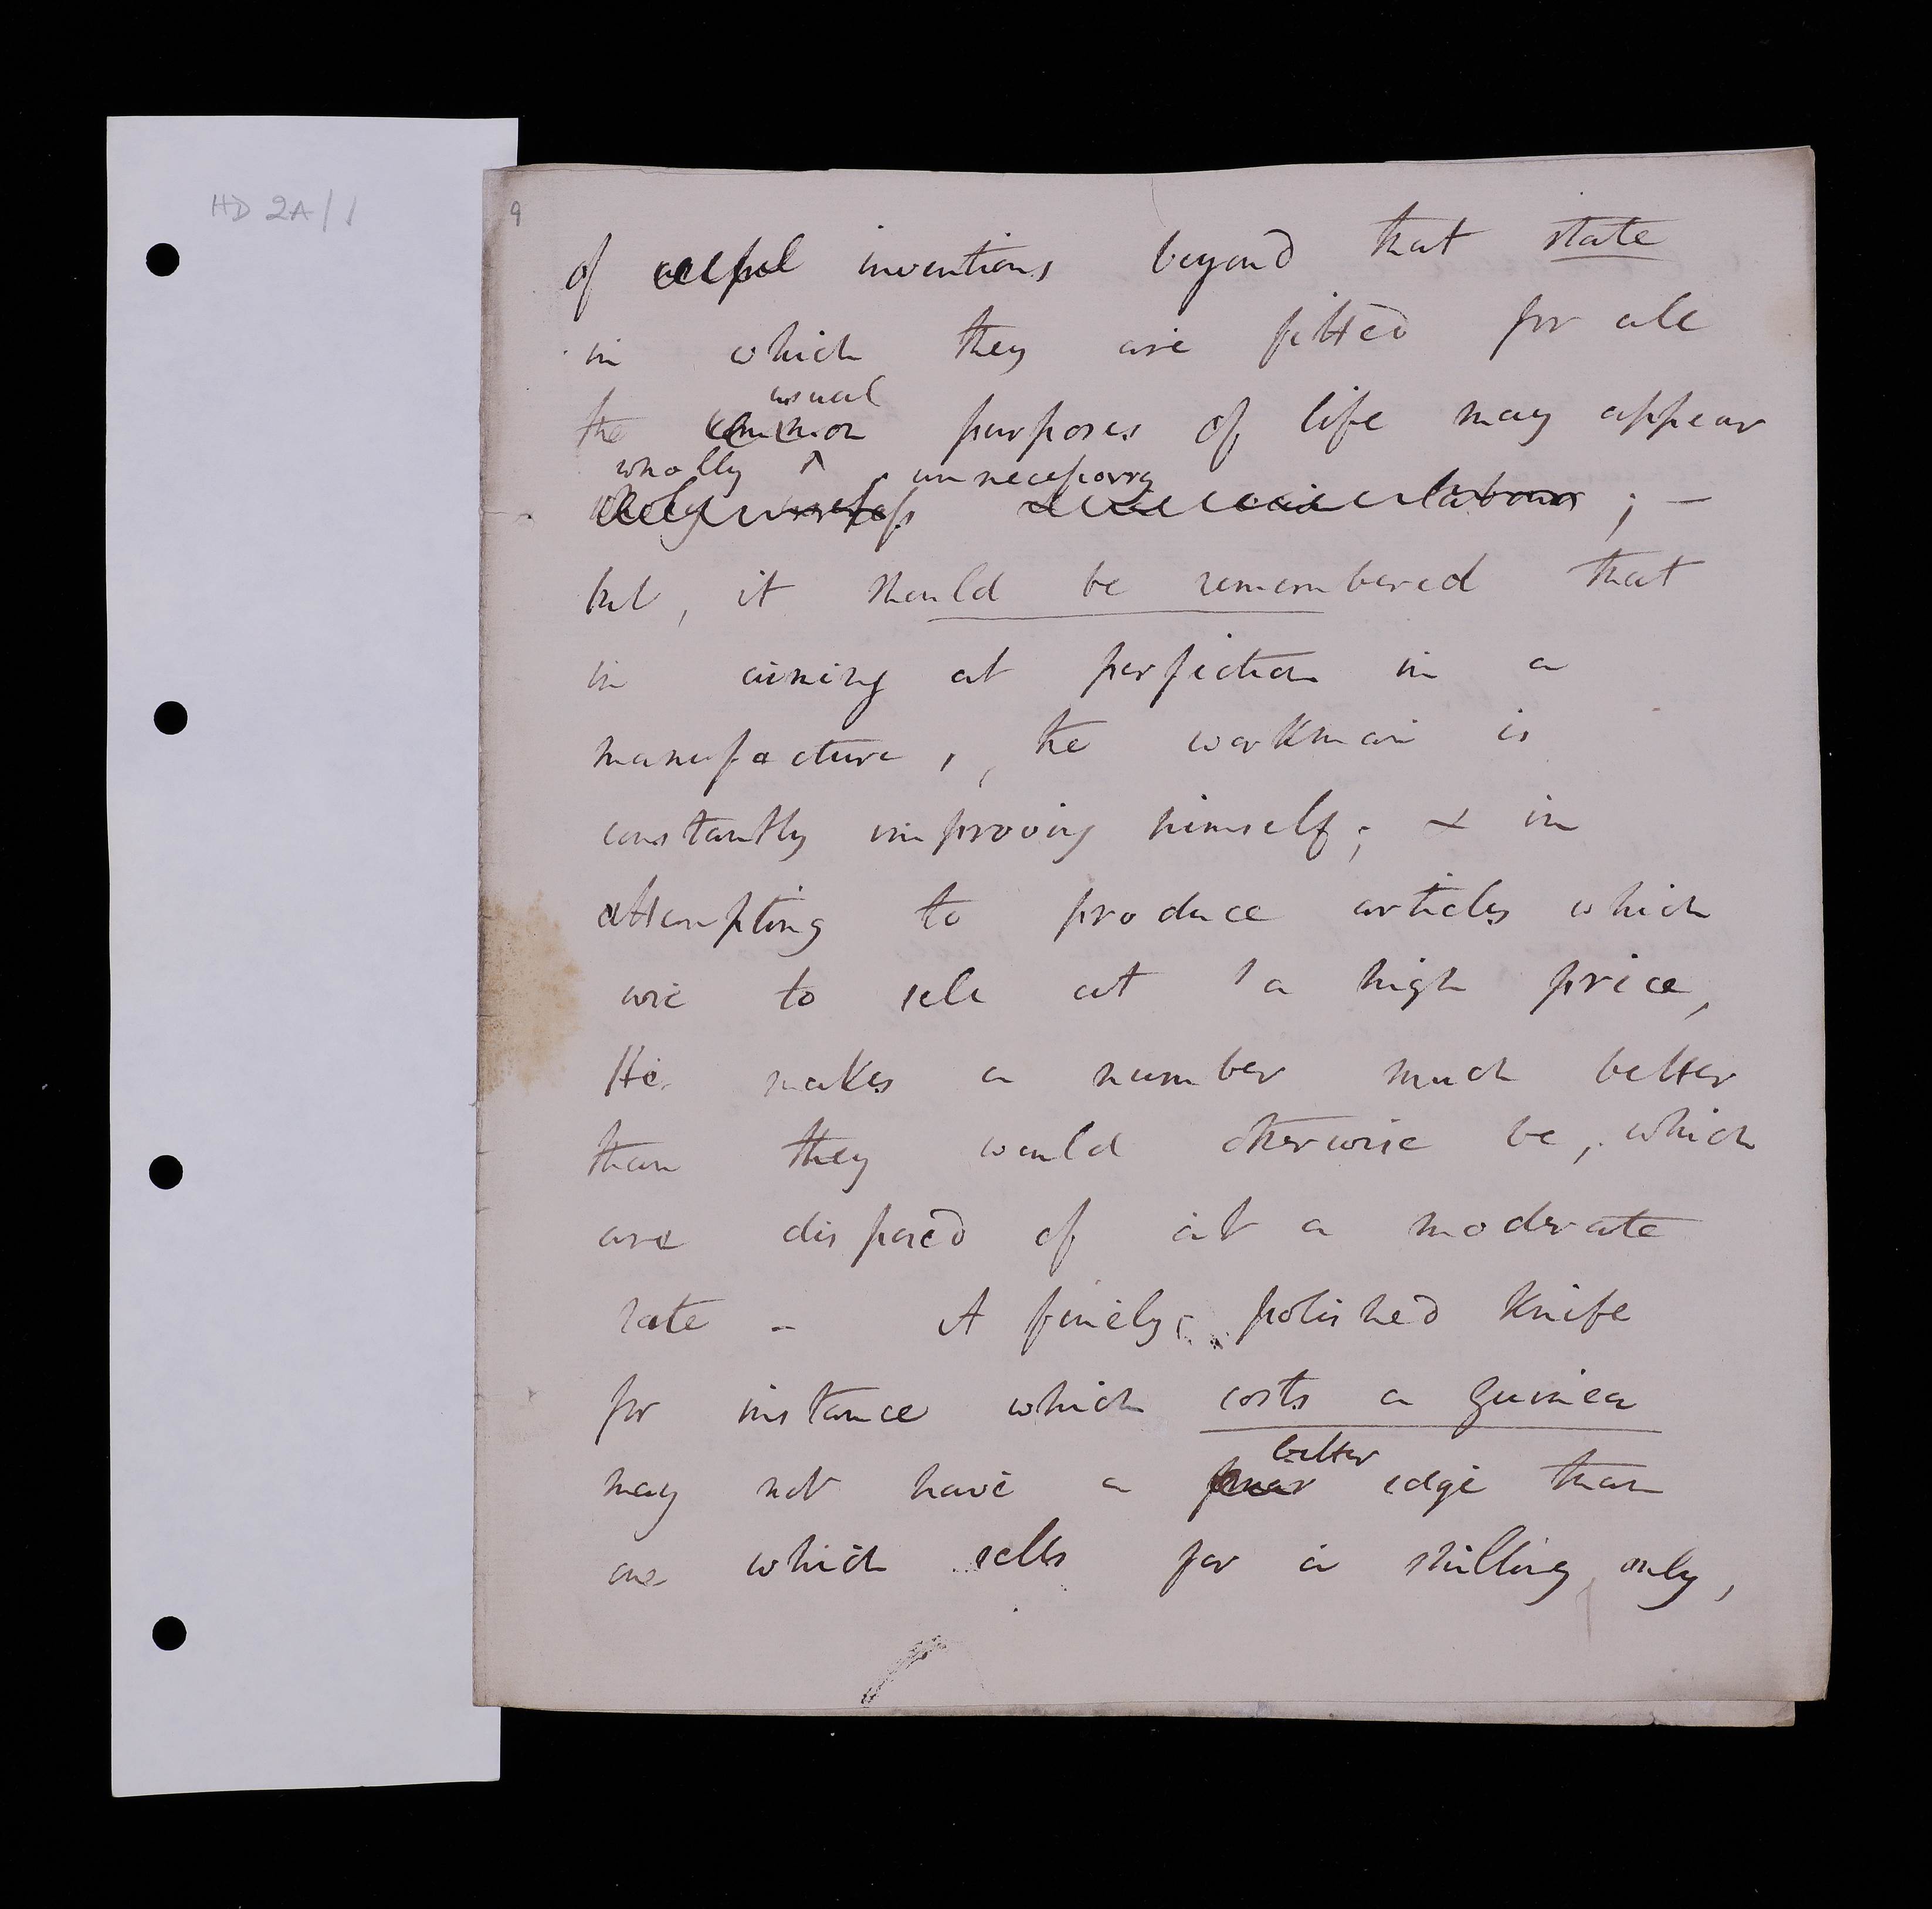 HD 2A/1
9
of useful inventions beyond that state
in which they are fitted for all
usual
the common purposes of life may appear
wholly unnecessary
wholly useless labour ; –
but, it should be remembered that
in aiming at perfection in a
manufacture, the workman is
constantly improving himself; & in
attempting to produce articles which
are to sell at a high price,
He makes a number much better
than they would otherwise be, which
are disposed of at a moderate
rate – A finely polished Knife
for instance which costs a guinea
better
may not have a finer edge than
one which sells for a shilling only,